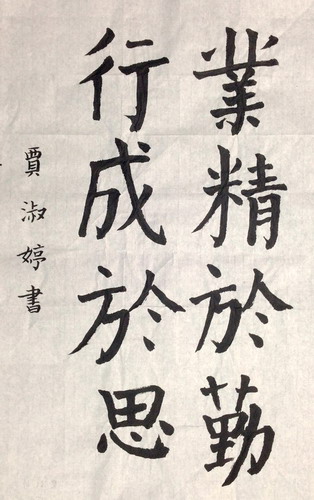 業精於勤
行成於思
賈淑婷書